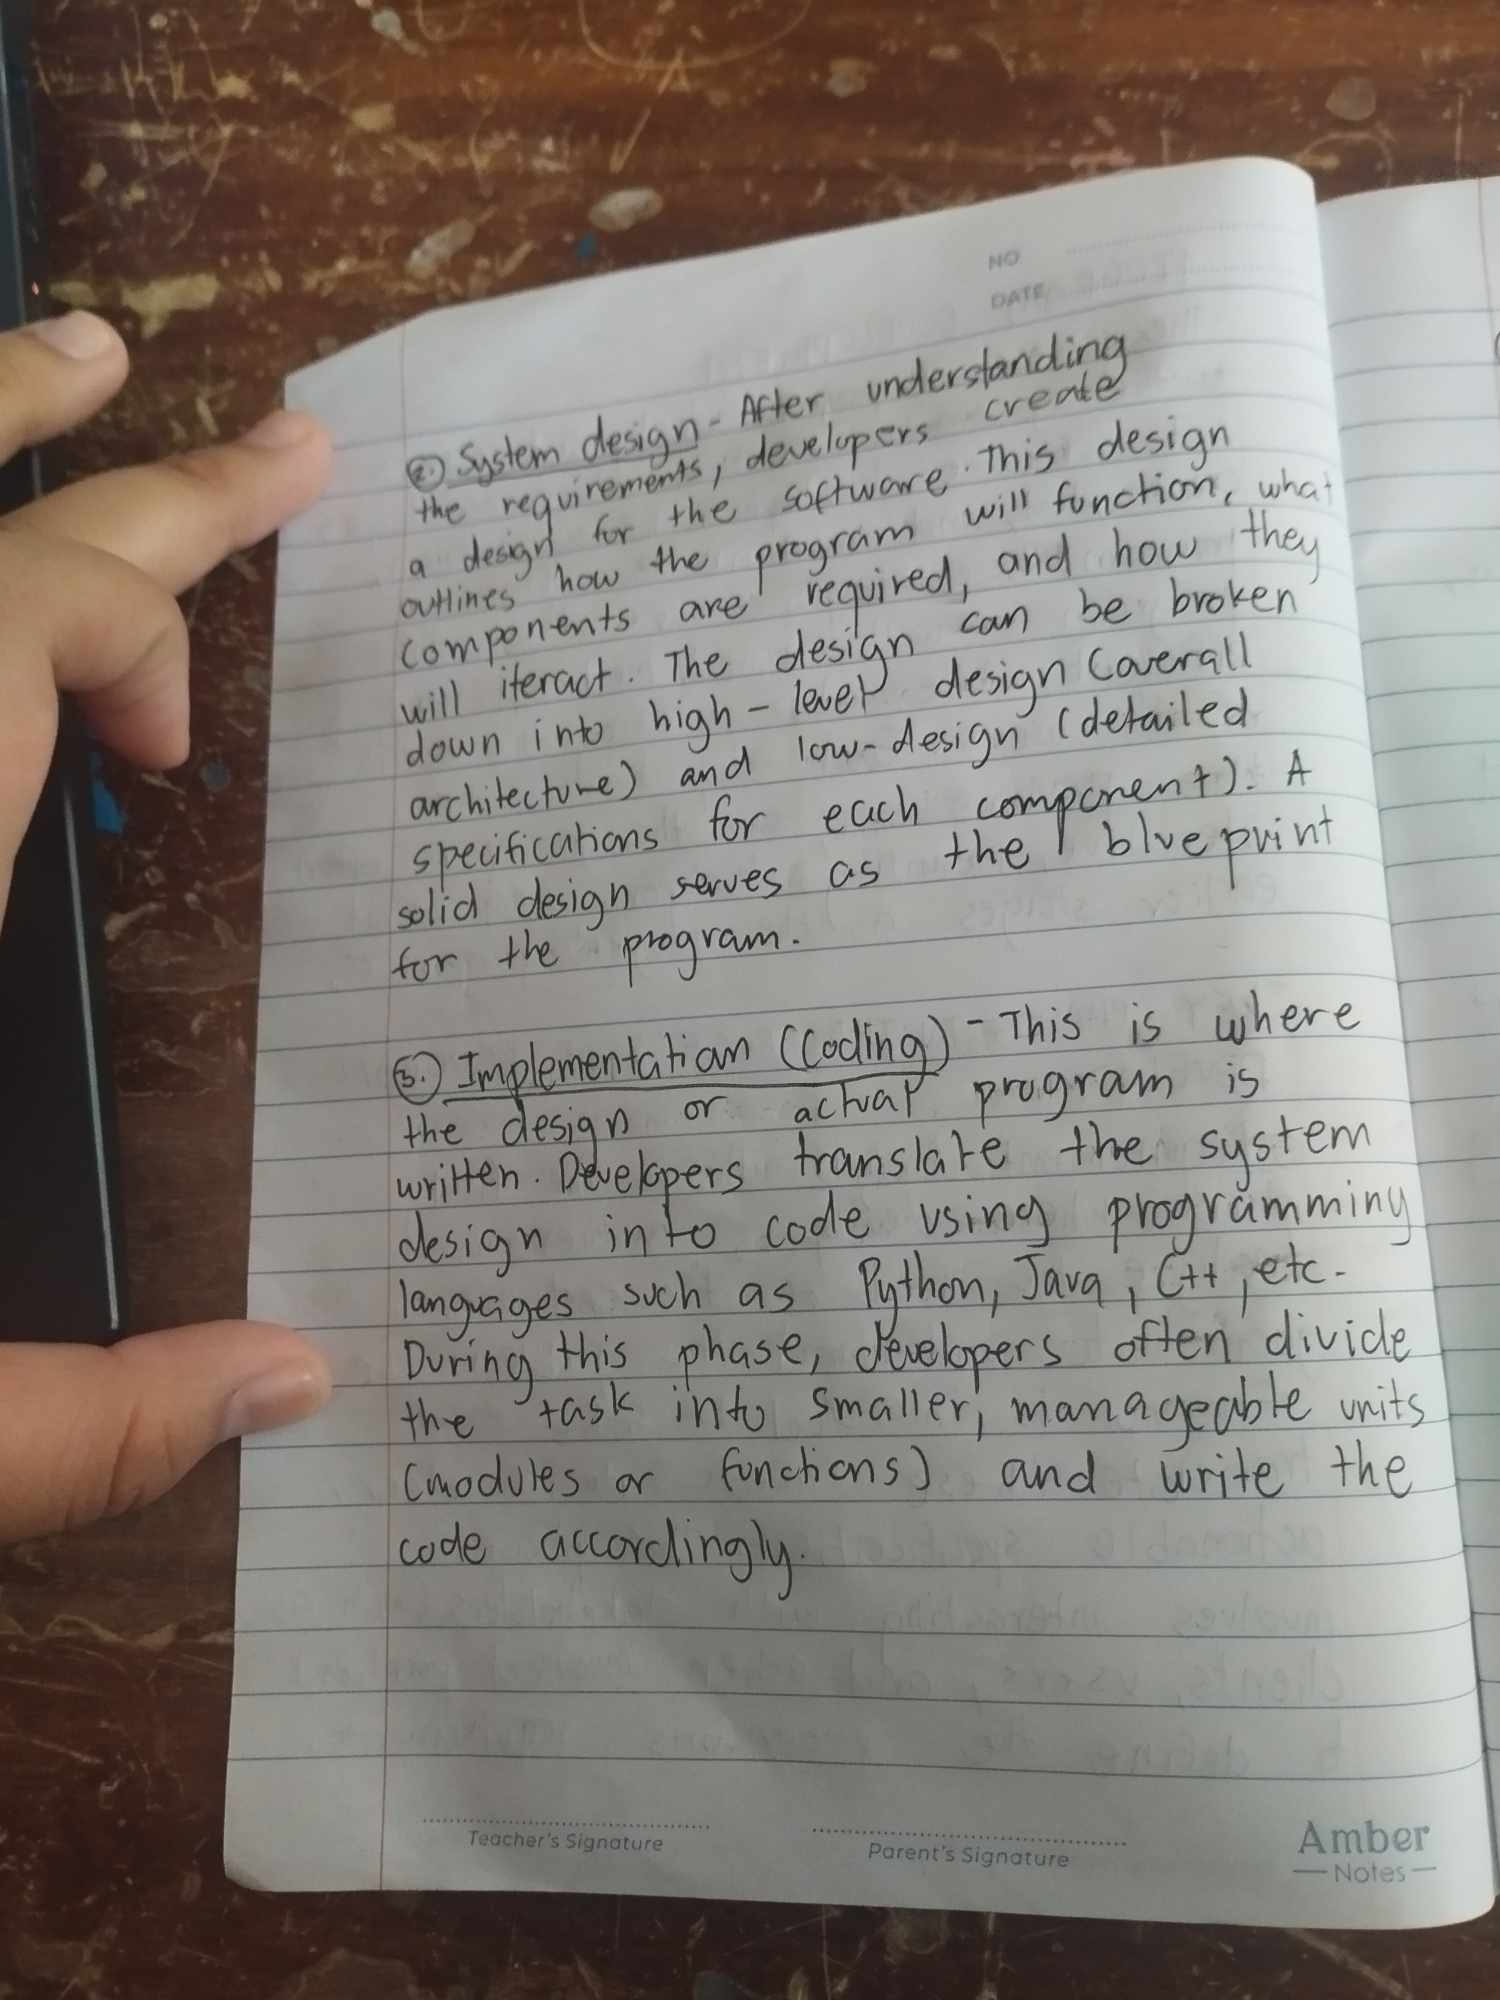 NO
DATE
2. System design - After understanding
the requirements, developers create
a design for the software. This design
outlines how the program will function, what
components are required, and how they
will iteract. The design can be broken
down into high - level design (overall
architecture) and low-design (detailed
specifications for each component). A
solid design serves as the blueprint
for the program.
3. Implementation (Coding) - This is where
the design or actual program is
written. Developers translate the system
design into code using programming
languages such as Python, Java, C++, etc.
During this phase, developers often divide
the task into smaller, manageable units
(modules or functions) and write the
code accordingly.
Teacher's Signature
Parent's Signature
Amber
Notes